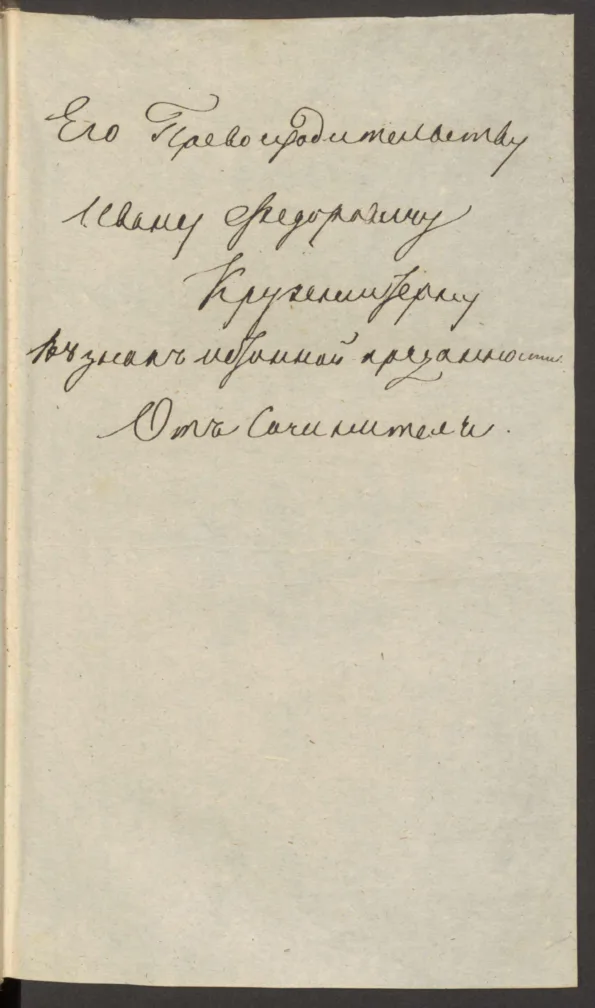 Его Превосходительству
Ивану Федоровичу
Крузенштерну
Въ знакъ истинной преданности
Отъ Сочинителя.